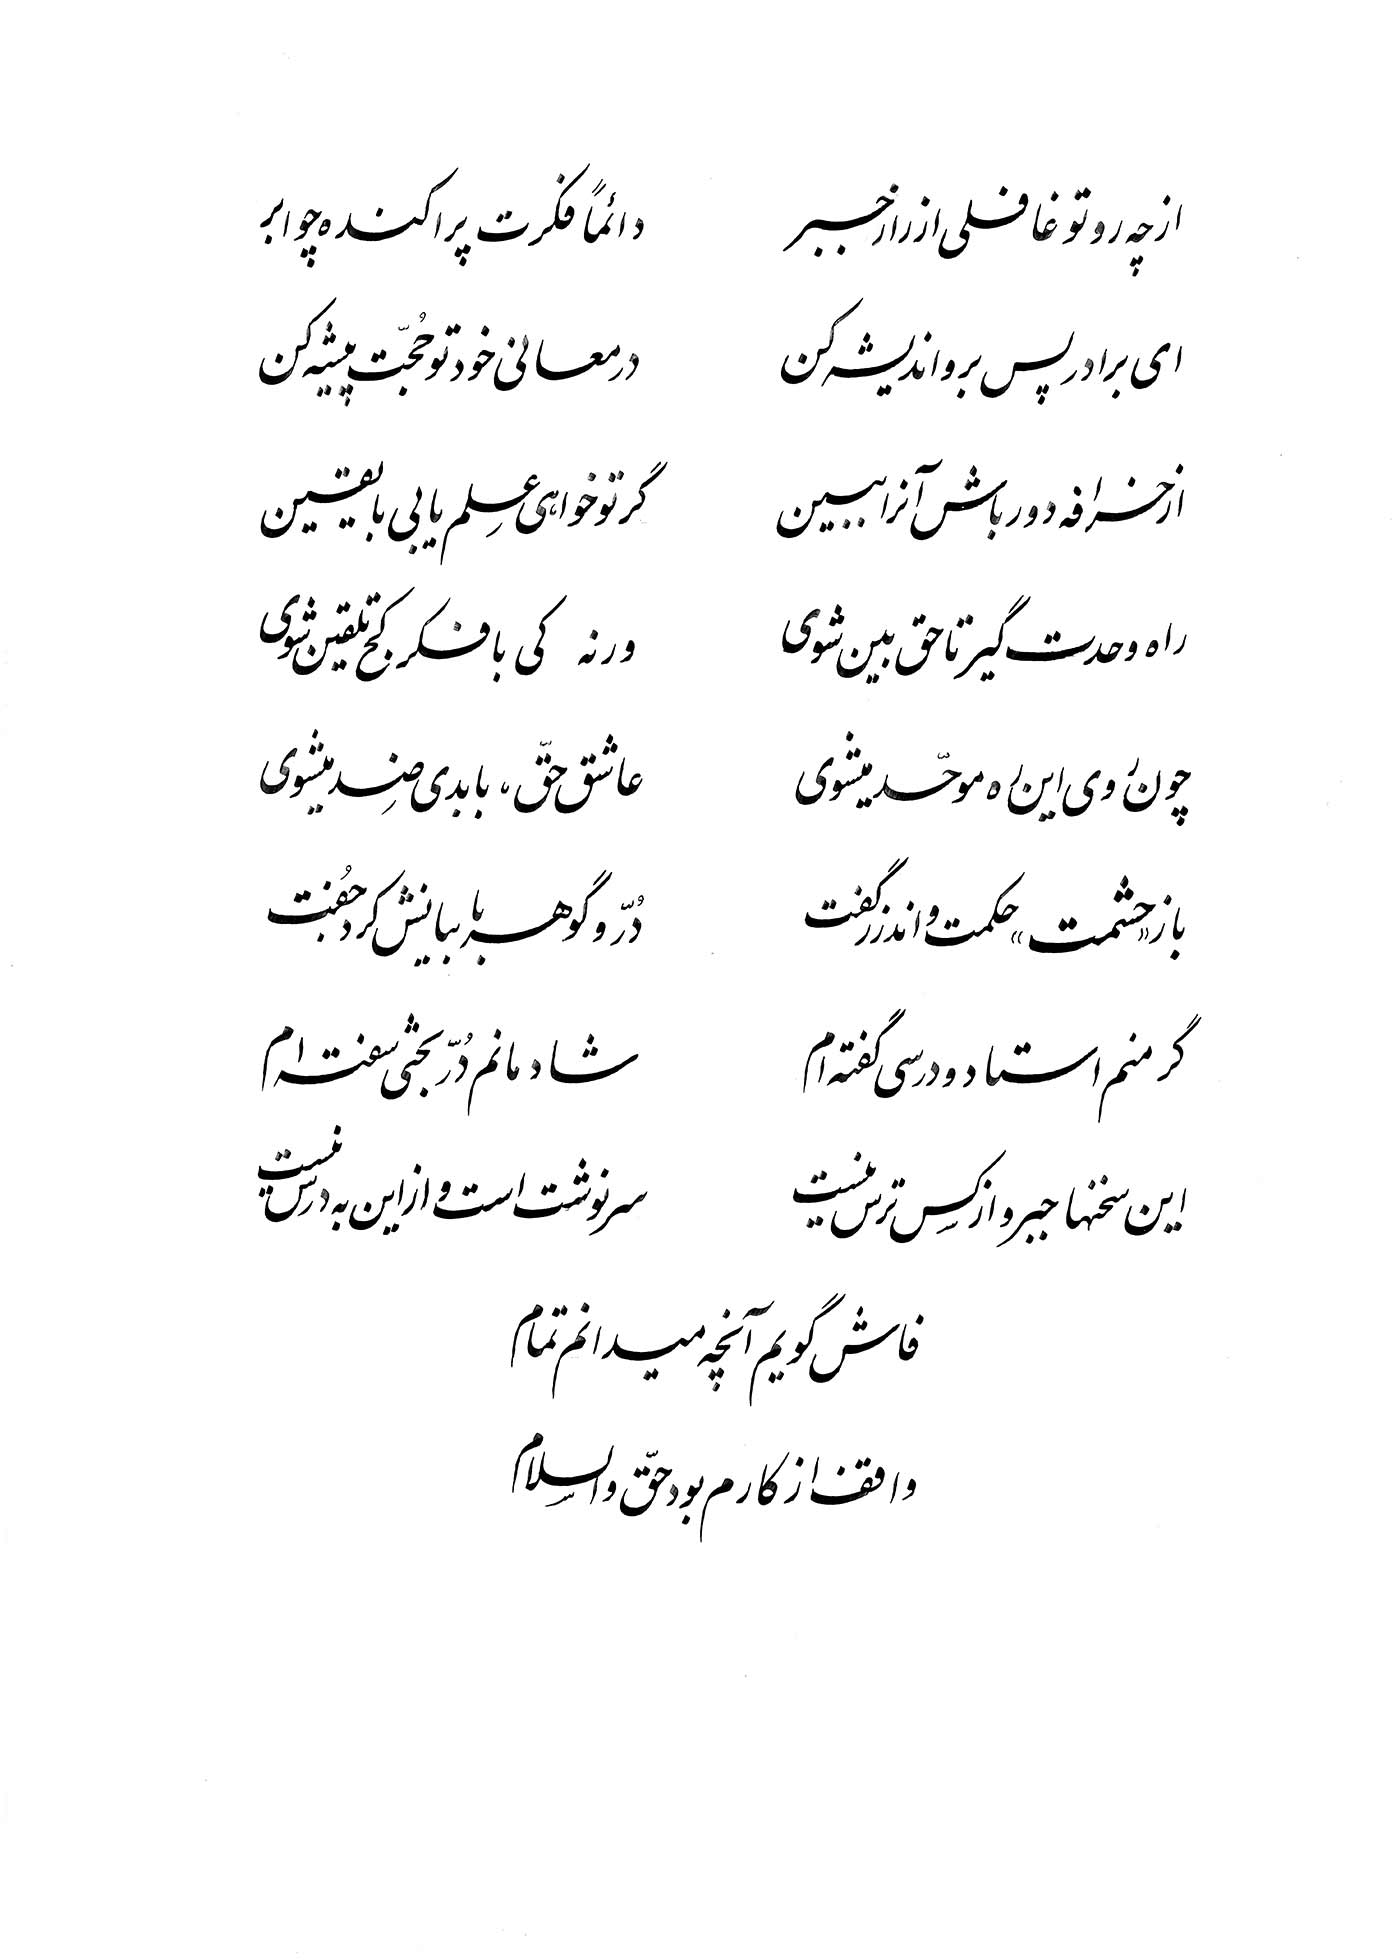 از چه رو تو غافلی از راز جبر دائماً فکرت پراکنده چو ابر
ای برادر پس برو اندیشه کن در معانی خود تو حُجّت پیشه کن
از خرافه دور باش آنرا ببین گر تو خواهی عِلم یابی با یقین
راه وحدت گیر تا حق بین شوی ورنه کی با فکر کج تلقین شوی
چون رَوی این ره موحّد میشوی عاشق حقّ، با بدی ضِد میشوی
باز «حشمت» حکمت و اندرز گفت دُرّ و گوهر با بیانش کرد جُفت
گر منم استاد و درسی گفته ام شادمانم دُرّ بحثی سفته ام
این سخنها جبر و از کِس ترس نیست سرنوشت است و از این به درس نیست
فاش گویم آنچه میدانم تمام
واقف از کارم بود حقّ والسِلام